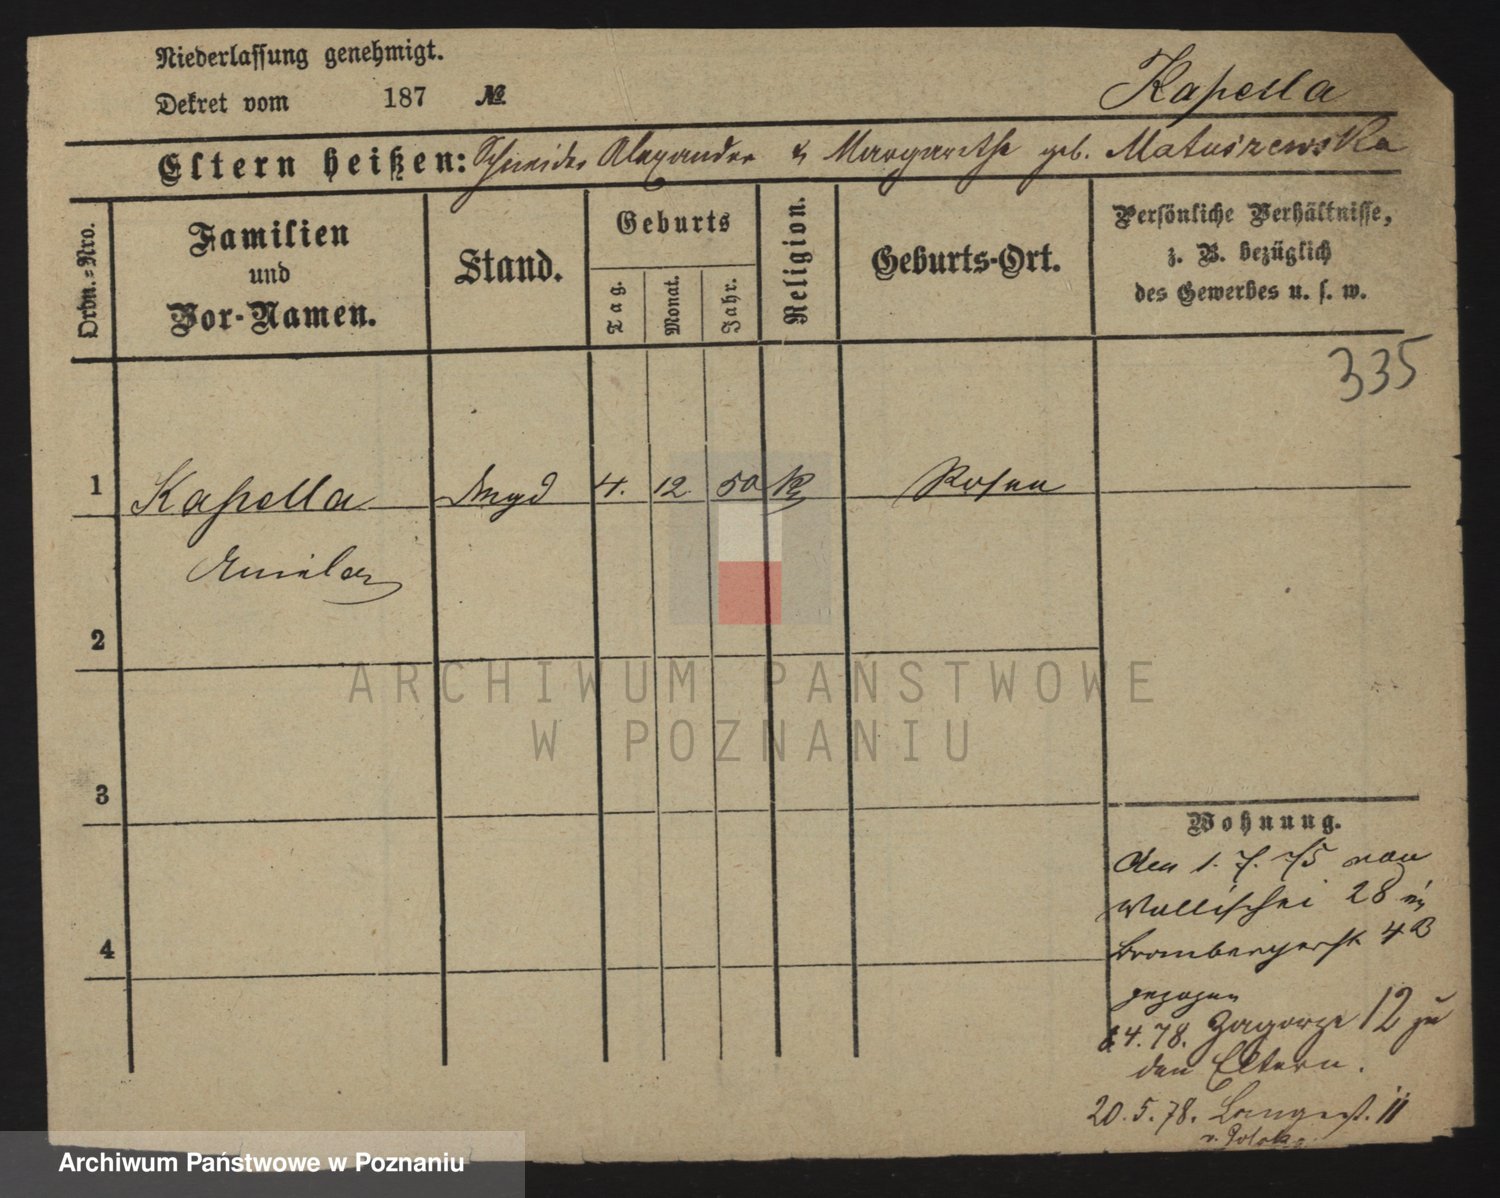 Niederlassung genehmigt.
Dekret vom 187 №
Kapella
Eltern heißen: Schneider Alexander & Margarethe geb. Matuszewska
Ordn.-Nro.
Familien
und
Vor-Namen.
Stand.
Geburts
Tag.
Monat.
Jahr.
Religion.
Geburts-Ort.
Persönliche Verhältnisse,
z. B. bezüglich
des Gewerbes u. s. w.
335
1 Kapella Magd 4. 12 50 K Posen
Emilie
2
3
4
Wohnung.
den 1. 7. 75 von
Wallischei 28 in
Brombergerst 4B
gezogen
4.78. Zagorze 12 zu
den Eltern.
20.5.78. Langest. 11
ARCHIWUM PAŃSTWOWE
W POZNANIU
Archiwum Państwowe w Poznaniu